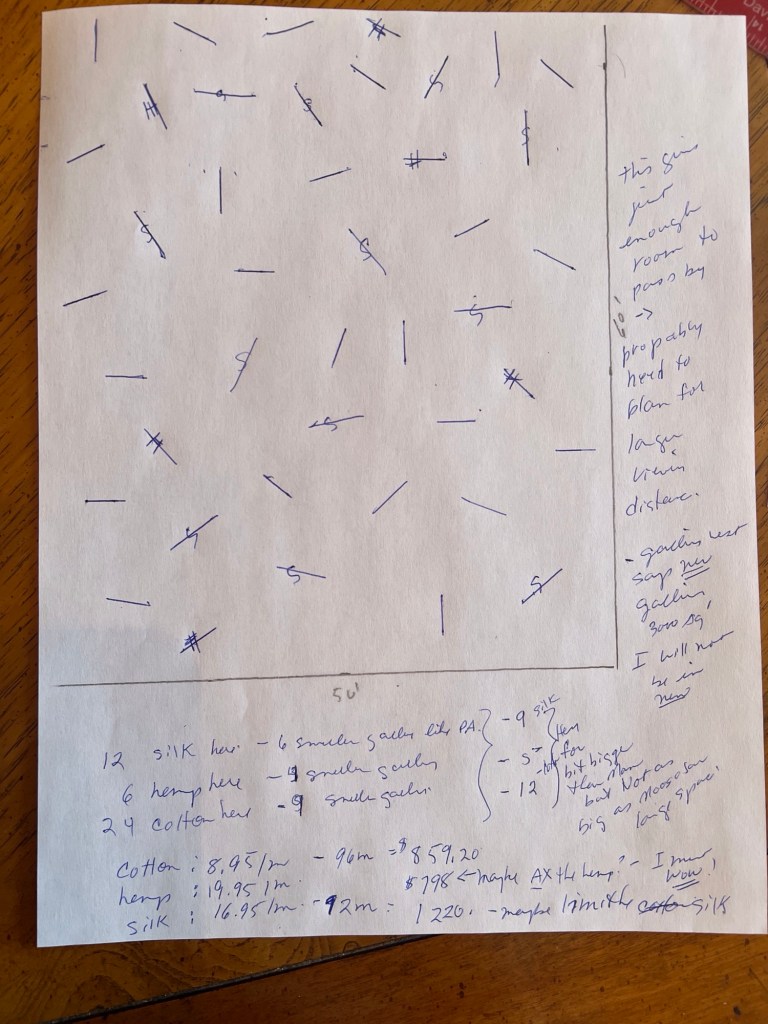 this gives
just
enough
room to
pass by
->
propably
need to
plan for
larger
viewing
distance.
60'
- says new
3000 sq'
I will not
be in
new
50'
12 silk here - 6 smaller like PA. - 9 silk
6 hemp here - 4 smaller - 5
24 cotton here - 9 smaller - 12
for
bit bigger
than
but Not as
big as
large space.
cotton: 8.95/m - 96m = $859.20
hemp: 19.95/m. $798 <- maybe AX the hemp? - I
wow!
silk: 16.95/m. - 92m = 1220. - maybe limit the cotton silk
S
S
S
S
S
S
S
S
S
S
S
S
#
#
#
#
#
#